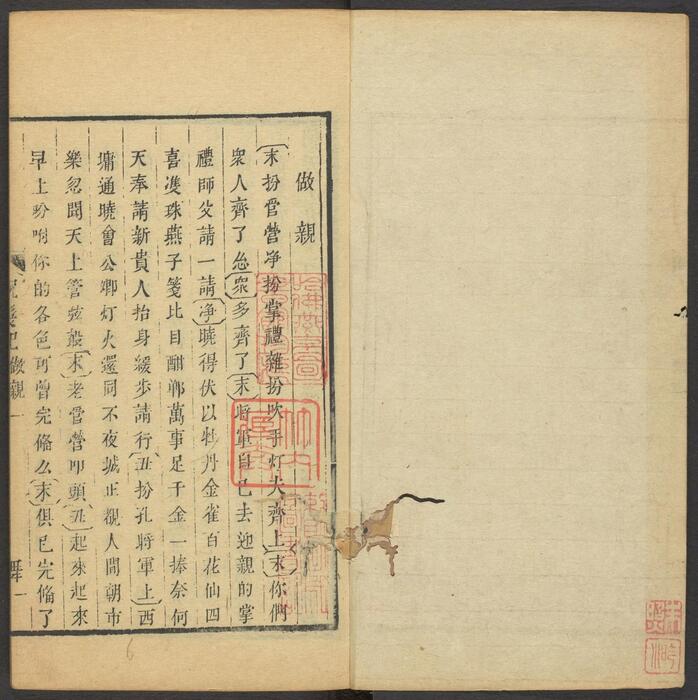 做親
〔末扮官營淨扮掌禮雜扮吹手灯夫齊上〕〔末〕你們
衆人齊了怹〔衆〕多齊了〔末〕將軍自己去迎親的掌
禮師父請一請〔淨〕曉得伏以牡丹金雀百花仙四
喜雙珠燕子箋比目酣鄲萬事足千金一捧奈何
天奉請新貴人抬身緩步請行〔丑扮孔將軍上〕西
墉通曉會公卿灯火還同不夜城正覩人間朝市
樂忽聞天上管絃般〔末〕老官營叩頭〔丑〕起來起來
早上吩咐你的各色可曾完偹么〔末〕俱已完偹了
做親 一
竹